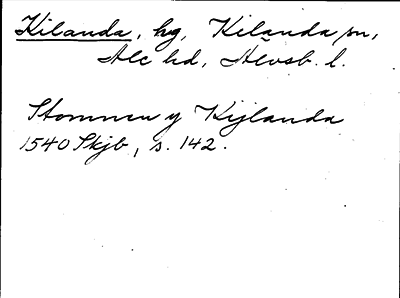 Kilanda, hg, Kilanda sn,
Ale hd, Älvsb. l.
Stommen y Kijlanda
1540 Skjb, s. 142.